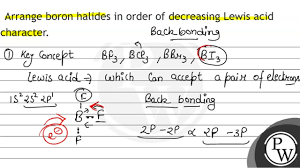 Arrange boron halides in order of decreasing Lewis acid
character.
Back bonding
① Key Concept BF₃, BCl₃, BBr₃, BI₃
Lewis acid → which can accept a pair of electrons
1S² 2S² 2P¹ F Back bonding
B F
e⊖ 2P - 2P ∝ 2P - 3P
F